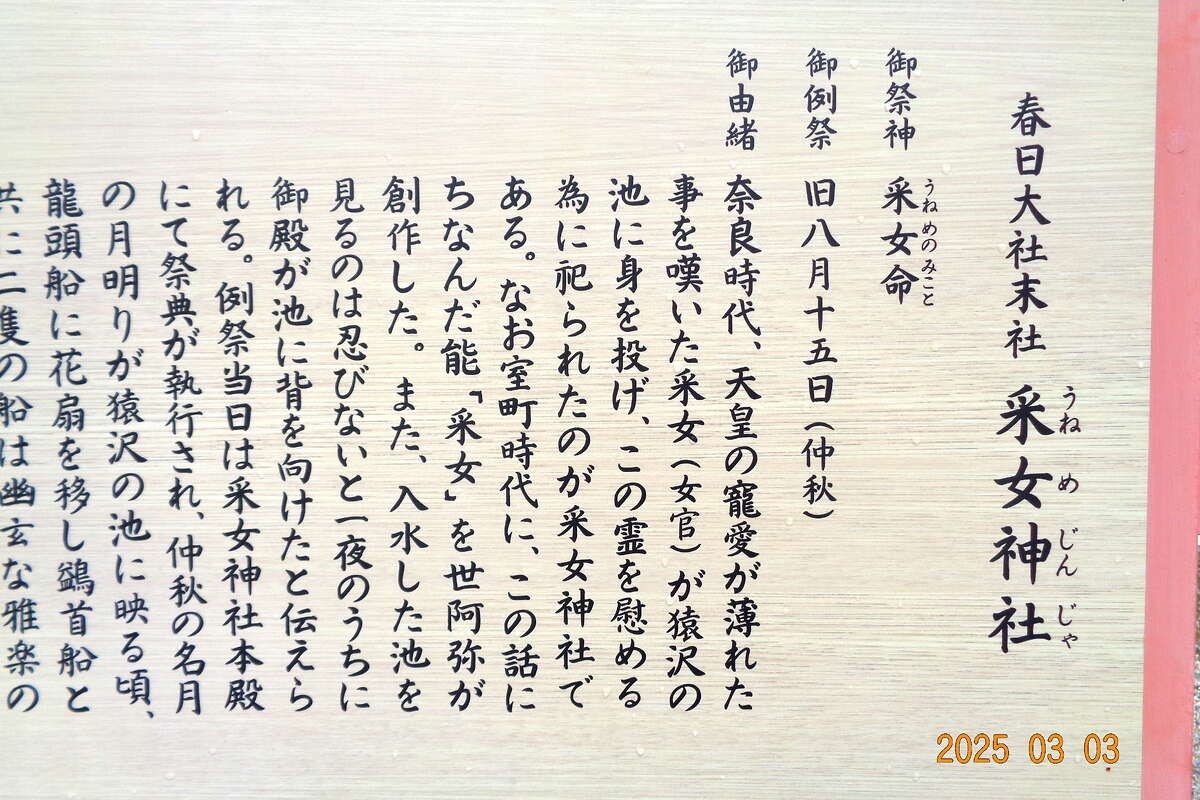 春日大社末社 采女神社
うねめじんじゃ
御祭神 采女命
うねめのみこと
御例祭 旧八月十五日（仲秋）
御由緒 奈良時代、天皇の寵愛が薄れた
事を嘆いた采女（女官）が猿沢の
池に身を投げ、この霊を慰める
為に祀られたのが采女神社で
ある。なお室町時代に、この話に
ちなんだ能「采女」を世阿弥が
創作した。また、入水した池を
見るのは忍びないと一夜のうちに
御殿が池に背を向けたと伝えら
れる。例祭当日は采女神社本殿
にて祭典が執行され、仲秋の名月
の月明りが猿沢の池に映る頃、
龍頭船に花扇を移し鷁首船と
共に二隻の船は幽玄な雅楽の
2025 03 03